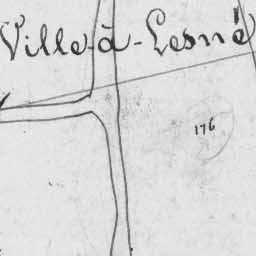 Ville-à-Lesné
176